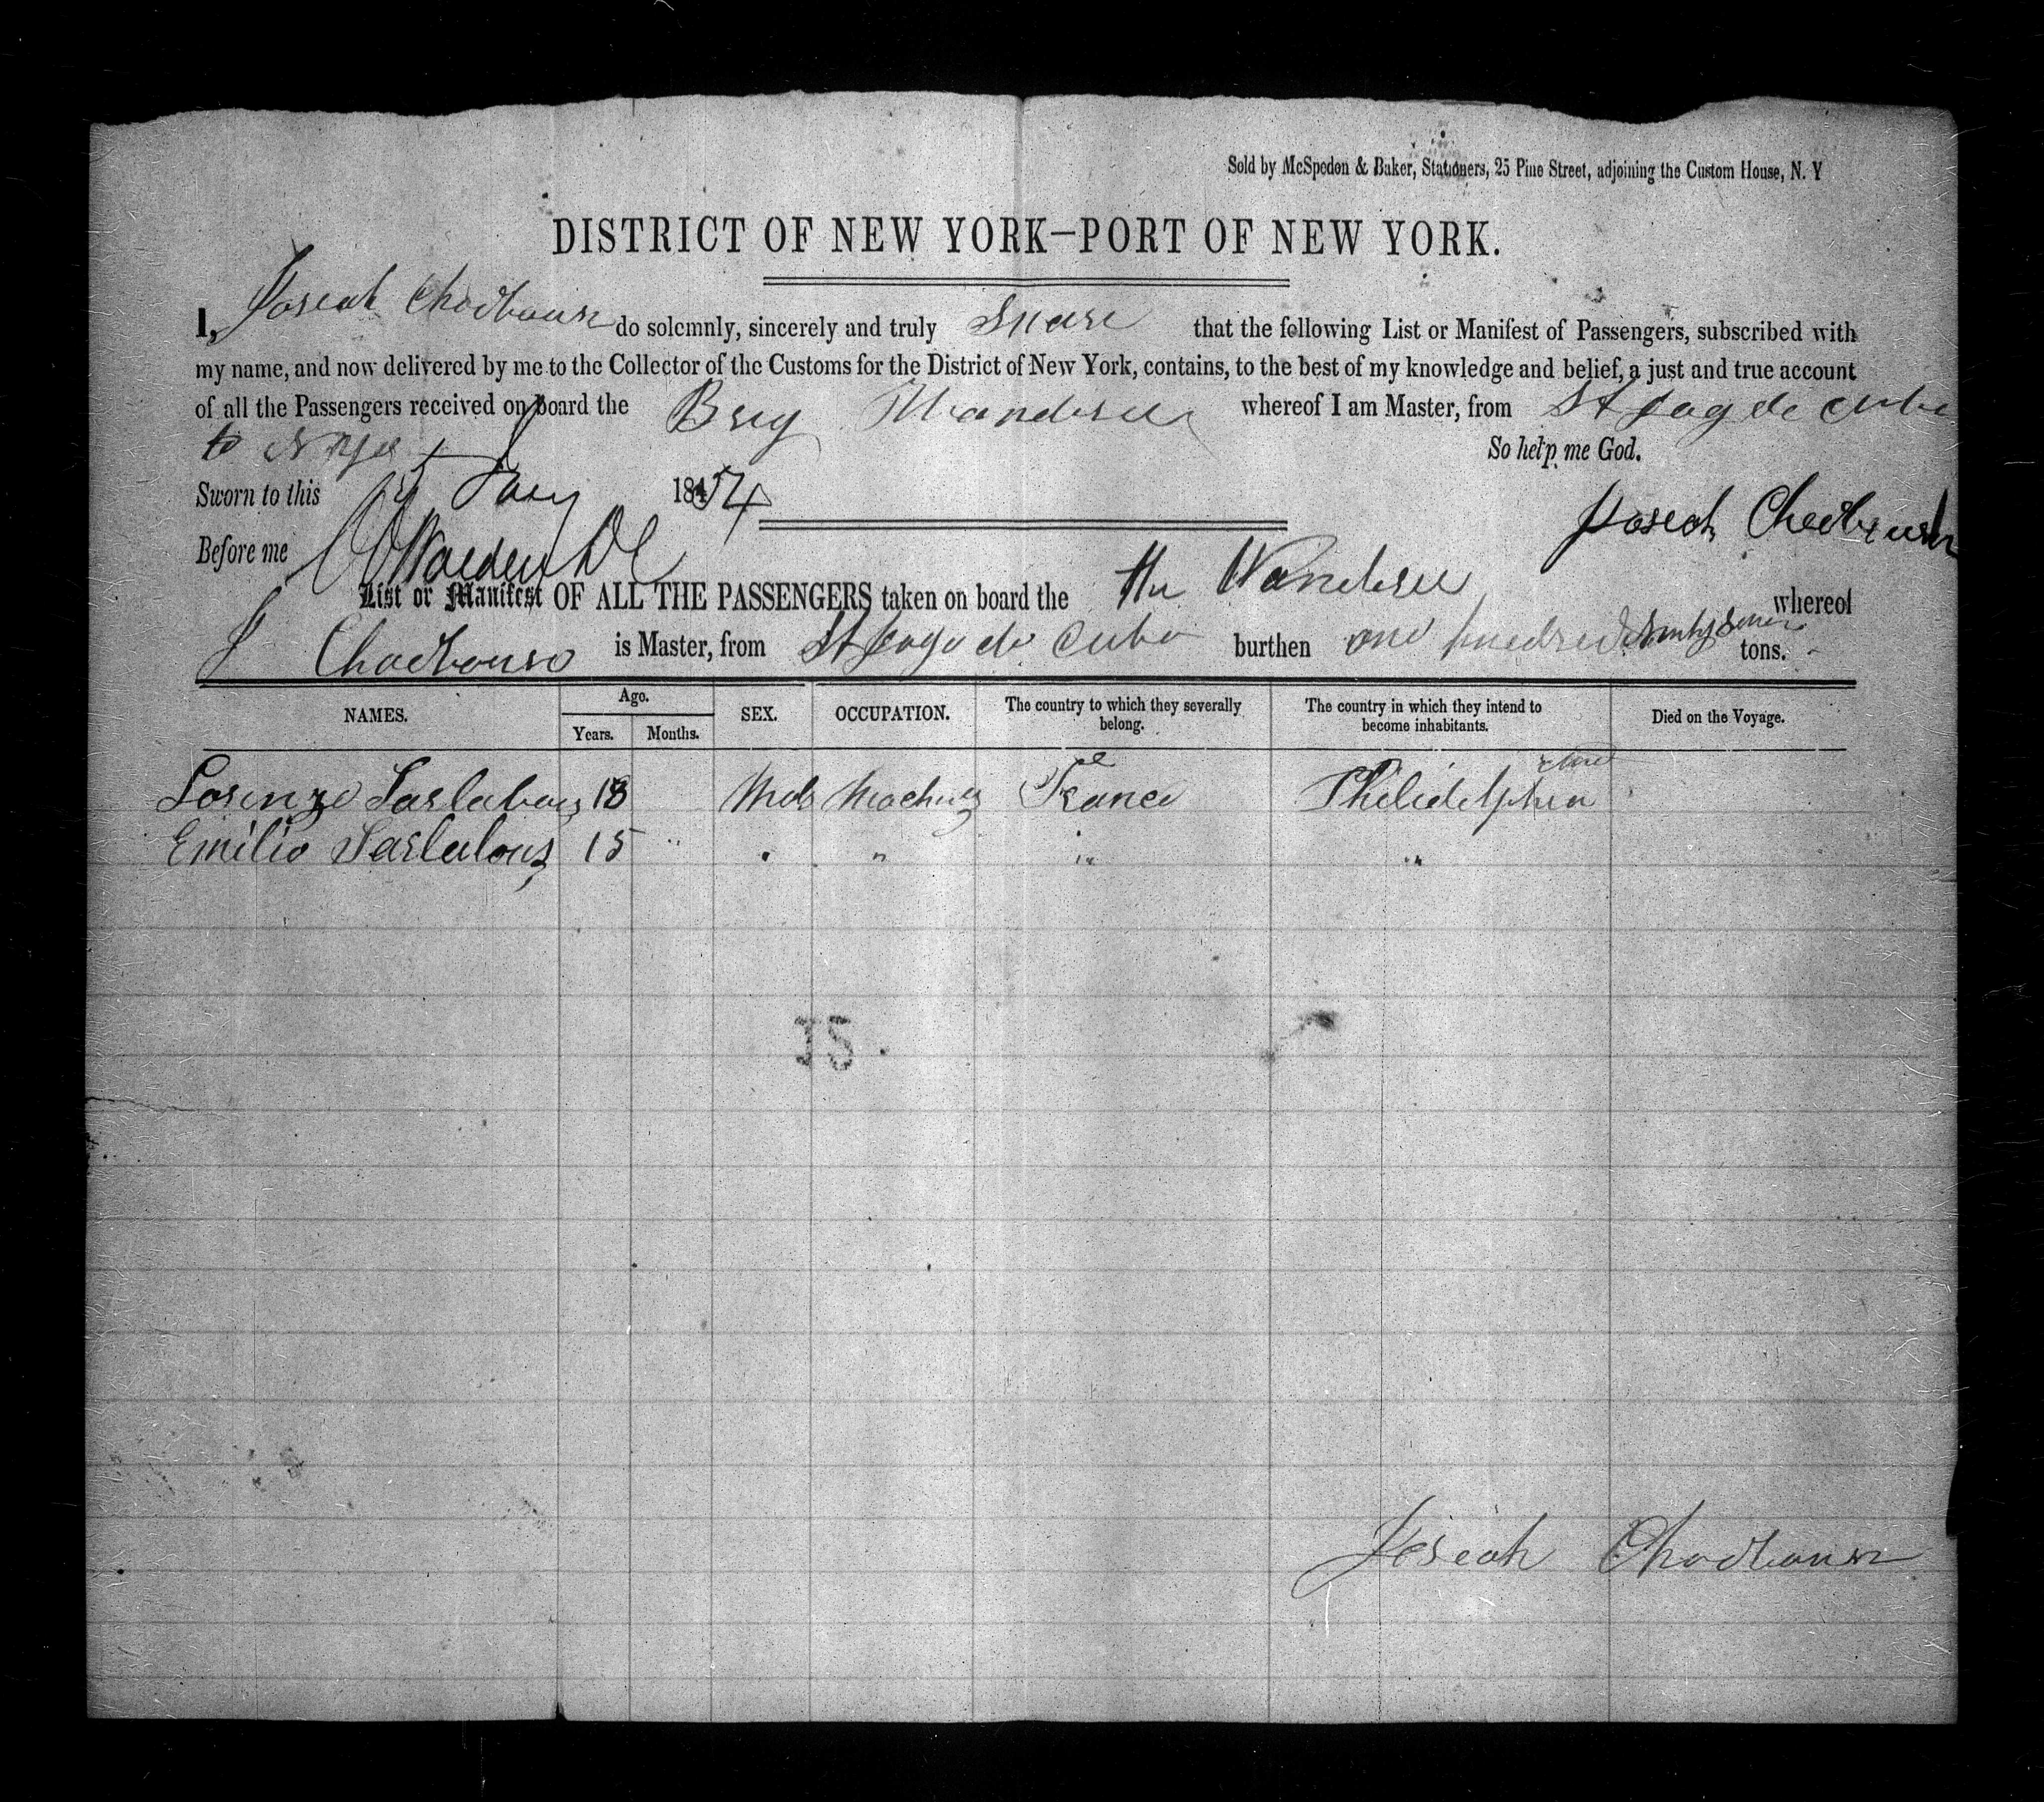 Sold by McSpedon & Baker, Stationers, 25 Pine Street, adjoining the Custom House, N. Y
DISTRICT OF NEW YORK—PORT OF NEW YORK.
I, Joseah Chadbourn do solemnly, sincerely and truly Swear that the following List or Manifest of Passengers, subscribed with
my name, and now delivered by me to the Collector of the Customs for the District of New York, contains, to the best of my knowledge and belief, a just and true account
of all the Passengers received on board the Brig Wanderer whereof I am Master, from St Jago de Cuba
to
So help me God.
Sworn to this Jany 1854
Joseah Chadbourn
Before me
List or Manifest OF ALL THE PASSENGERS taken on board the the Wanderer whereof
J Chadbourn is Master, from St Jago de Cuba burthen one hundred tons.
NAMES. Age. SEX. OCCUPATION. The country to which they severally belong. The country in which they intend to become inhabitants. Died on the Voyage.
Years. Months.
Lorenzo 18 Male France Philidelphia
Emilio 15 " " " " "
JS.
Joseah Chadbourn